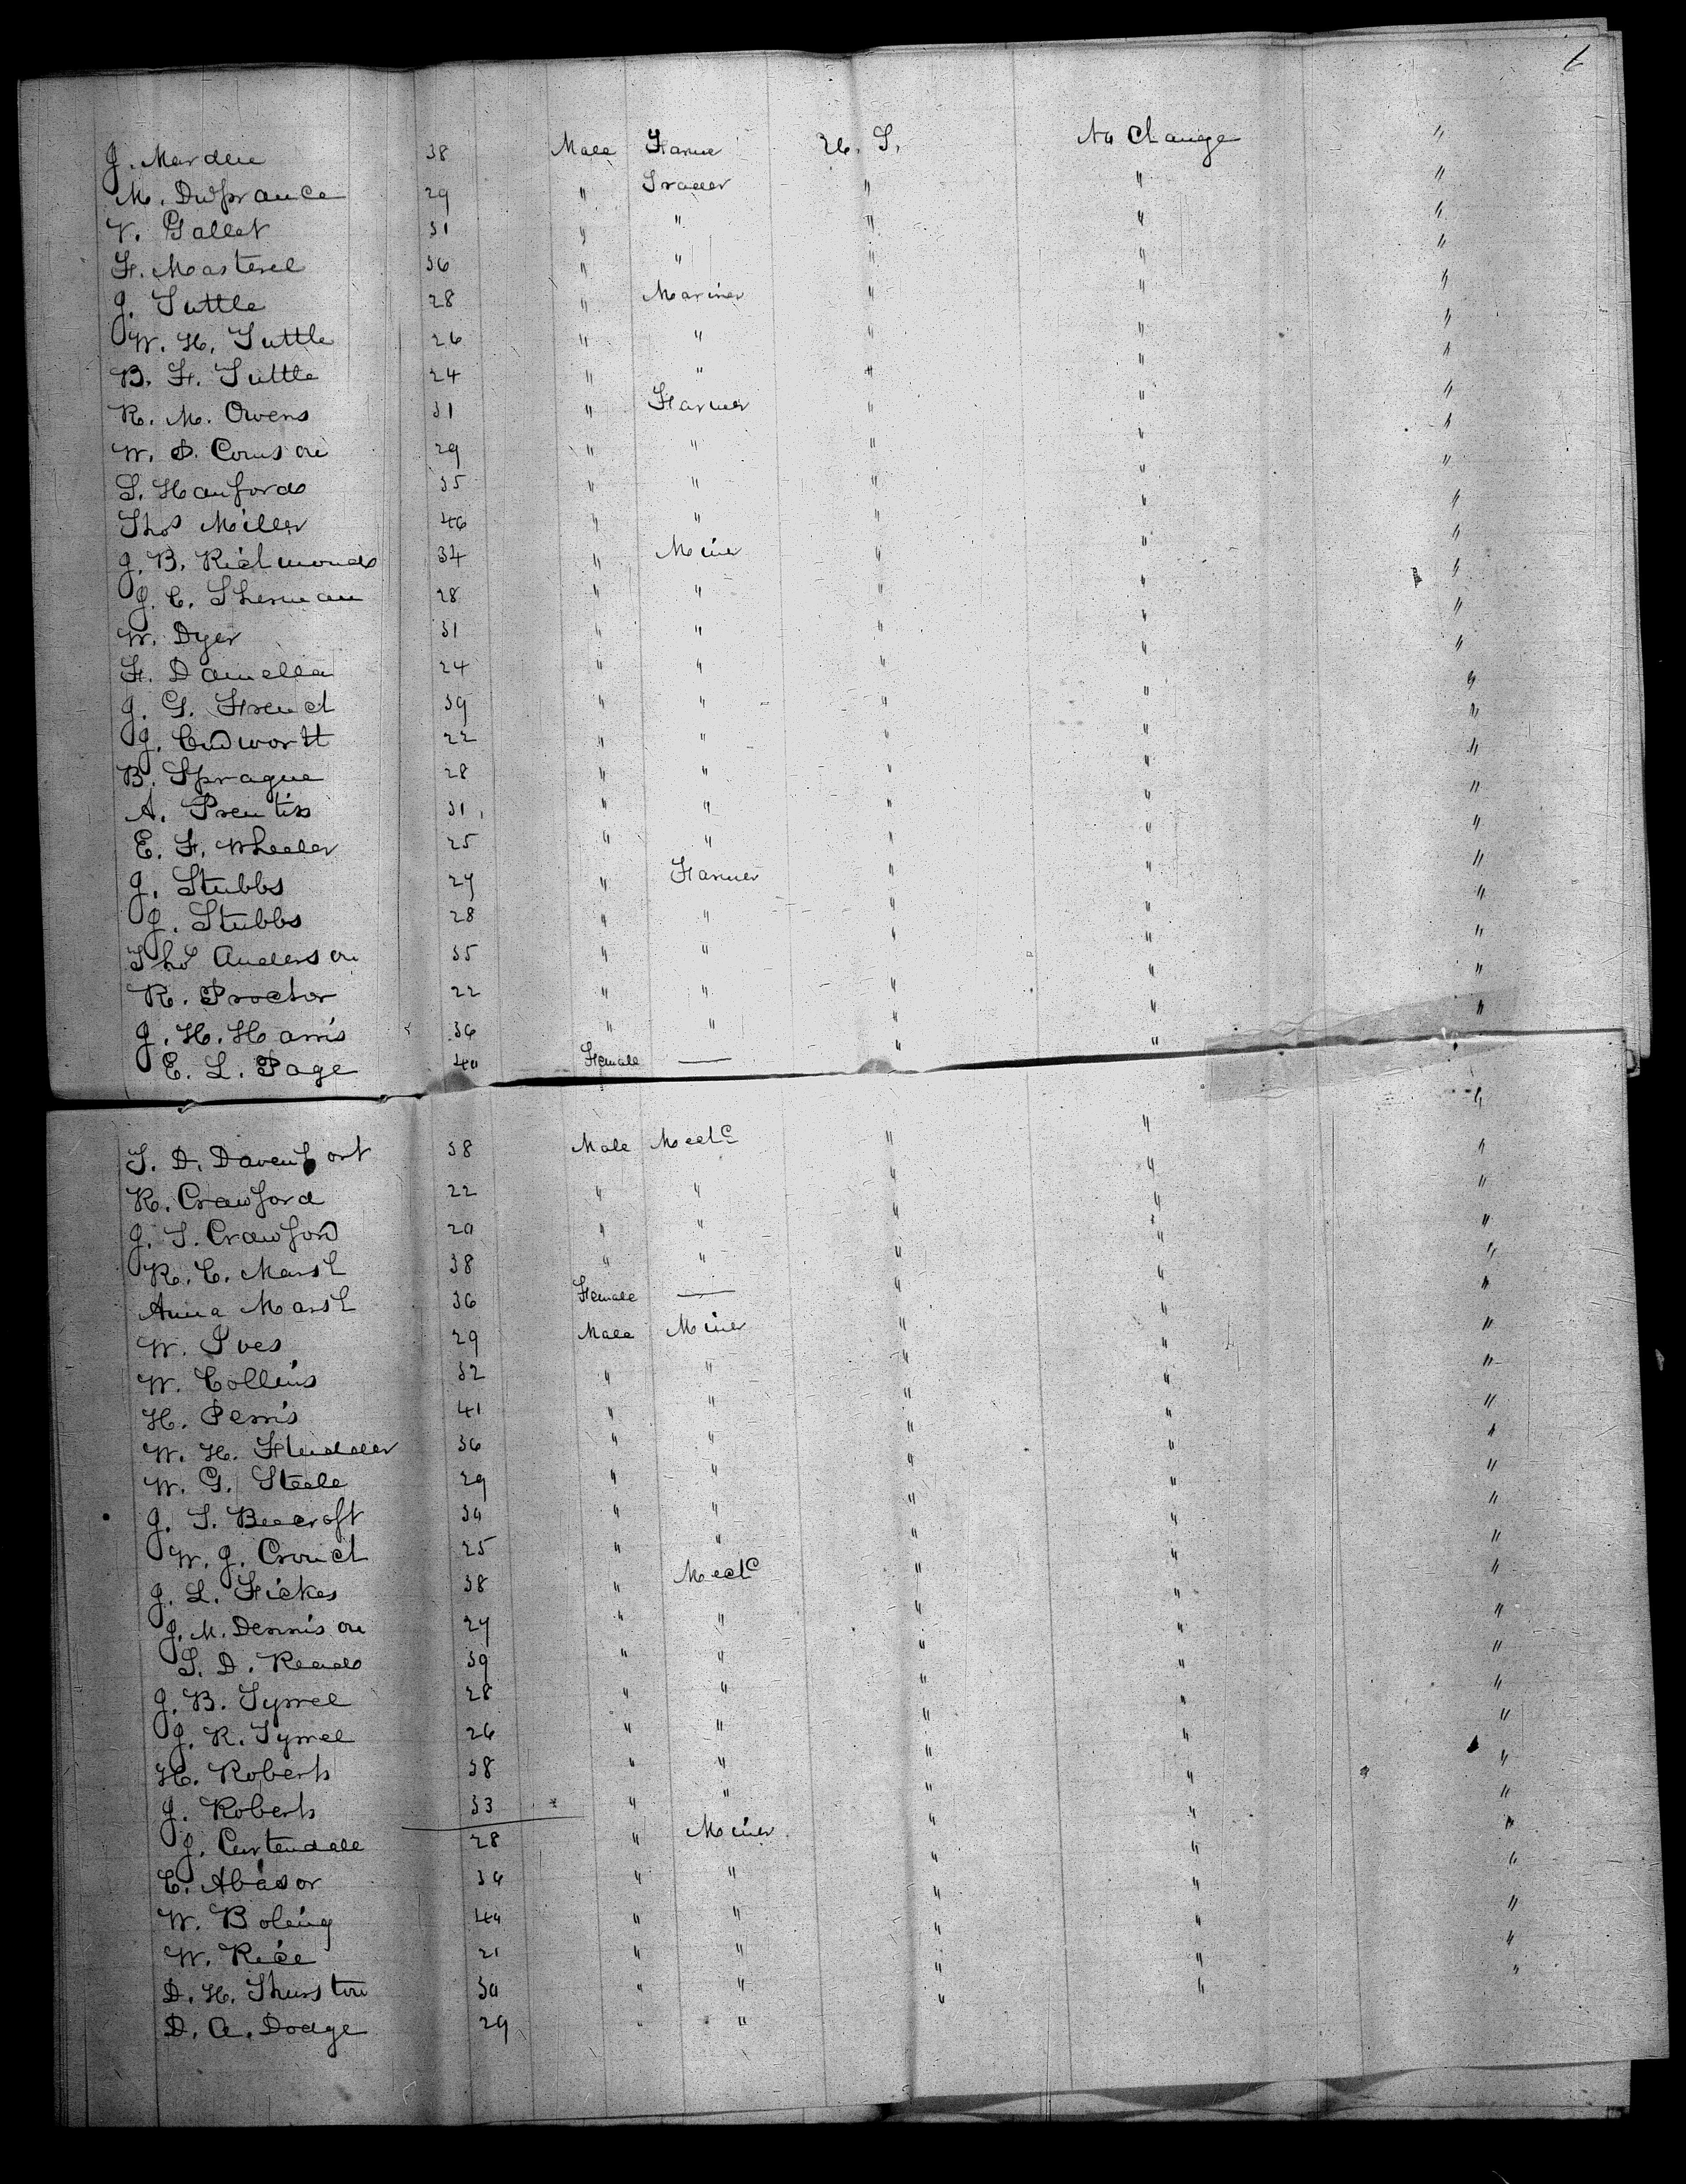 J. Marden 38 Male Farmer U. S. No Change "
M. Dufrance 29 " Trader " " "
V. Gallet 31 " " " " "
F. Masterel 36 " " " " "
J. Tuttle 28 " Mariner " " "
W. H. Tuttle 26 " " " " "
B. F. Tuttle 24 " " " " "
R. M. Owens 31 " Farmer " " "
W. P. Cornson 29 " " " " "
S. Hanford 35 " " " " "
Thos Miller 46 " " " " "
J. B. Richmond 34 " Miner " " "
J. C. Sherman 28 " " " " "
W. Dyer 31 " " " " "
F. Damella 24 " " " " "
J. G. French 39 " " " " "
J. Cudworth 22 " " " " "
B. Sprague 28 " " " " "
A. Prentiss 31 " " " " "
E. F. Wheeler 25 " " " " "
J. Stubbs 27 " Farmer " " "
J. Stubbs 28 " " " " "
Thos Anderson 35 " " " " "
R. Proctor 22 " " " " "
J. H. Harris 36 " " " " "
E. L. Page 40 Female — " " "
S. D. Davenport 38 Male Mechc " " "
R. Crawford 22 " " " " "
J. S. Crawford 20 " " " " "
R. C. Marsh 38 " " " " "
Anna Marsh 36 Female — " " "
W. Ives 29 Male Miner " " "
W. Collins 32 " " " " "
H. Perris 41 " " " " "
W. H. 36 " " " " "
W. G. Steele 29 " " " " "
J. S. Beecroft 30 " " " " "
W. J. Crouch 25 " " " " "
J. L. Fickes 38 " Mechc " " "
J. M. Dennison 27 " " " " "
S. D. Read 39 " " " " "
J. B. Tyrrel 28 " " " " "
J. R. Tyrrel 26 " " " " "
H. Roberts 38 " " " " "
J. Roberts 33 " " " " "
J. 28 " Miner " " "
C. 34 " " " " "
W. Boling 40 " " " " "
W. Rice 21 " " " " "
D. H. Thurston 30 " " " " "
D. A. Dodge 29 " "